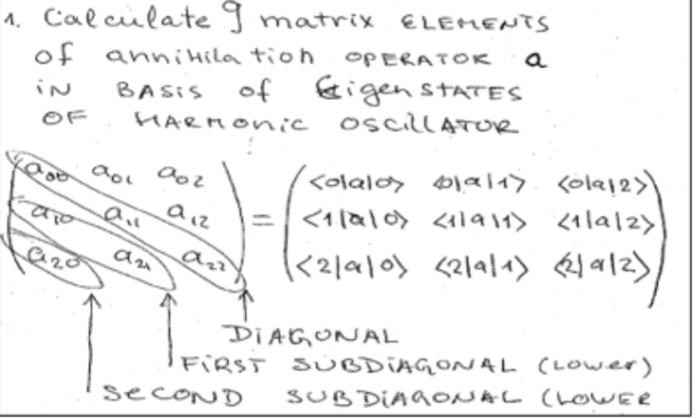 1. Calculate 9 matrix ELEMENTS
of annihilation OPERATOR a
in BASIS of EigenSTATES
OF HARMONIC OSCILLATOR
a00 a01 a02 = <0|a|0> <0|a|1> <0|a|2>
a10 a11 a12 <1|a|0> <1|a|1> <1|a|2>
a20 a21 a22 <2|a|0> <2|a|1> <2|a|2>
DIAGONAL
FIRST SUBDIAGONAL (Lower)
SECOND SUBDIAGONAL (LOWER